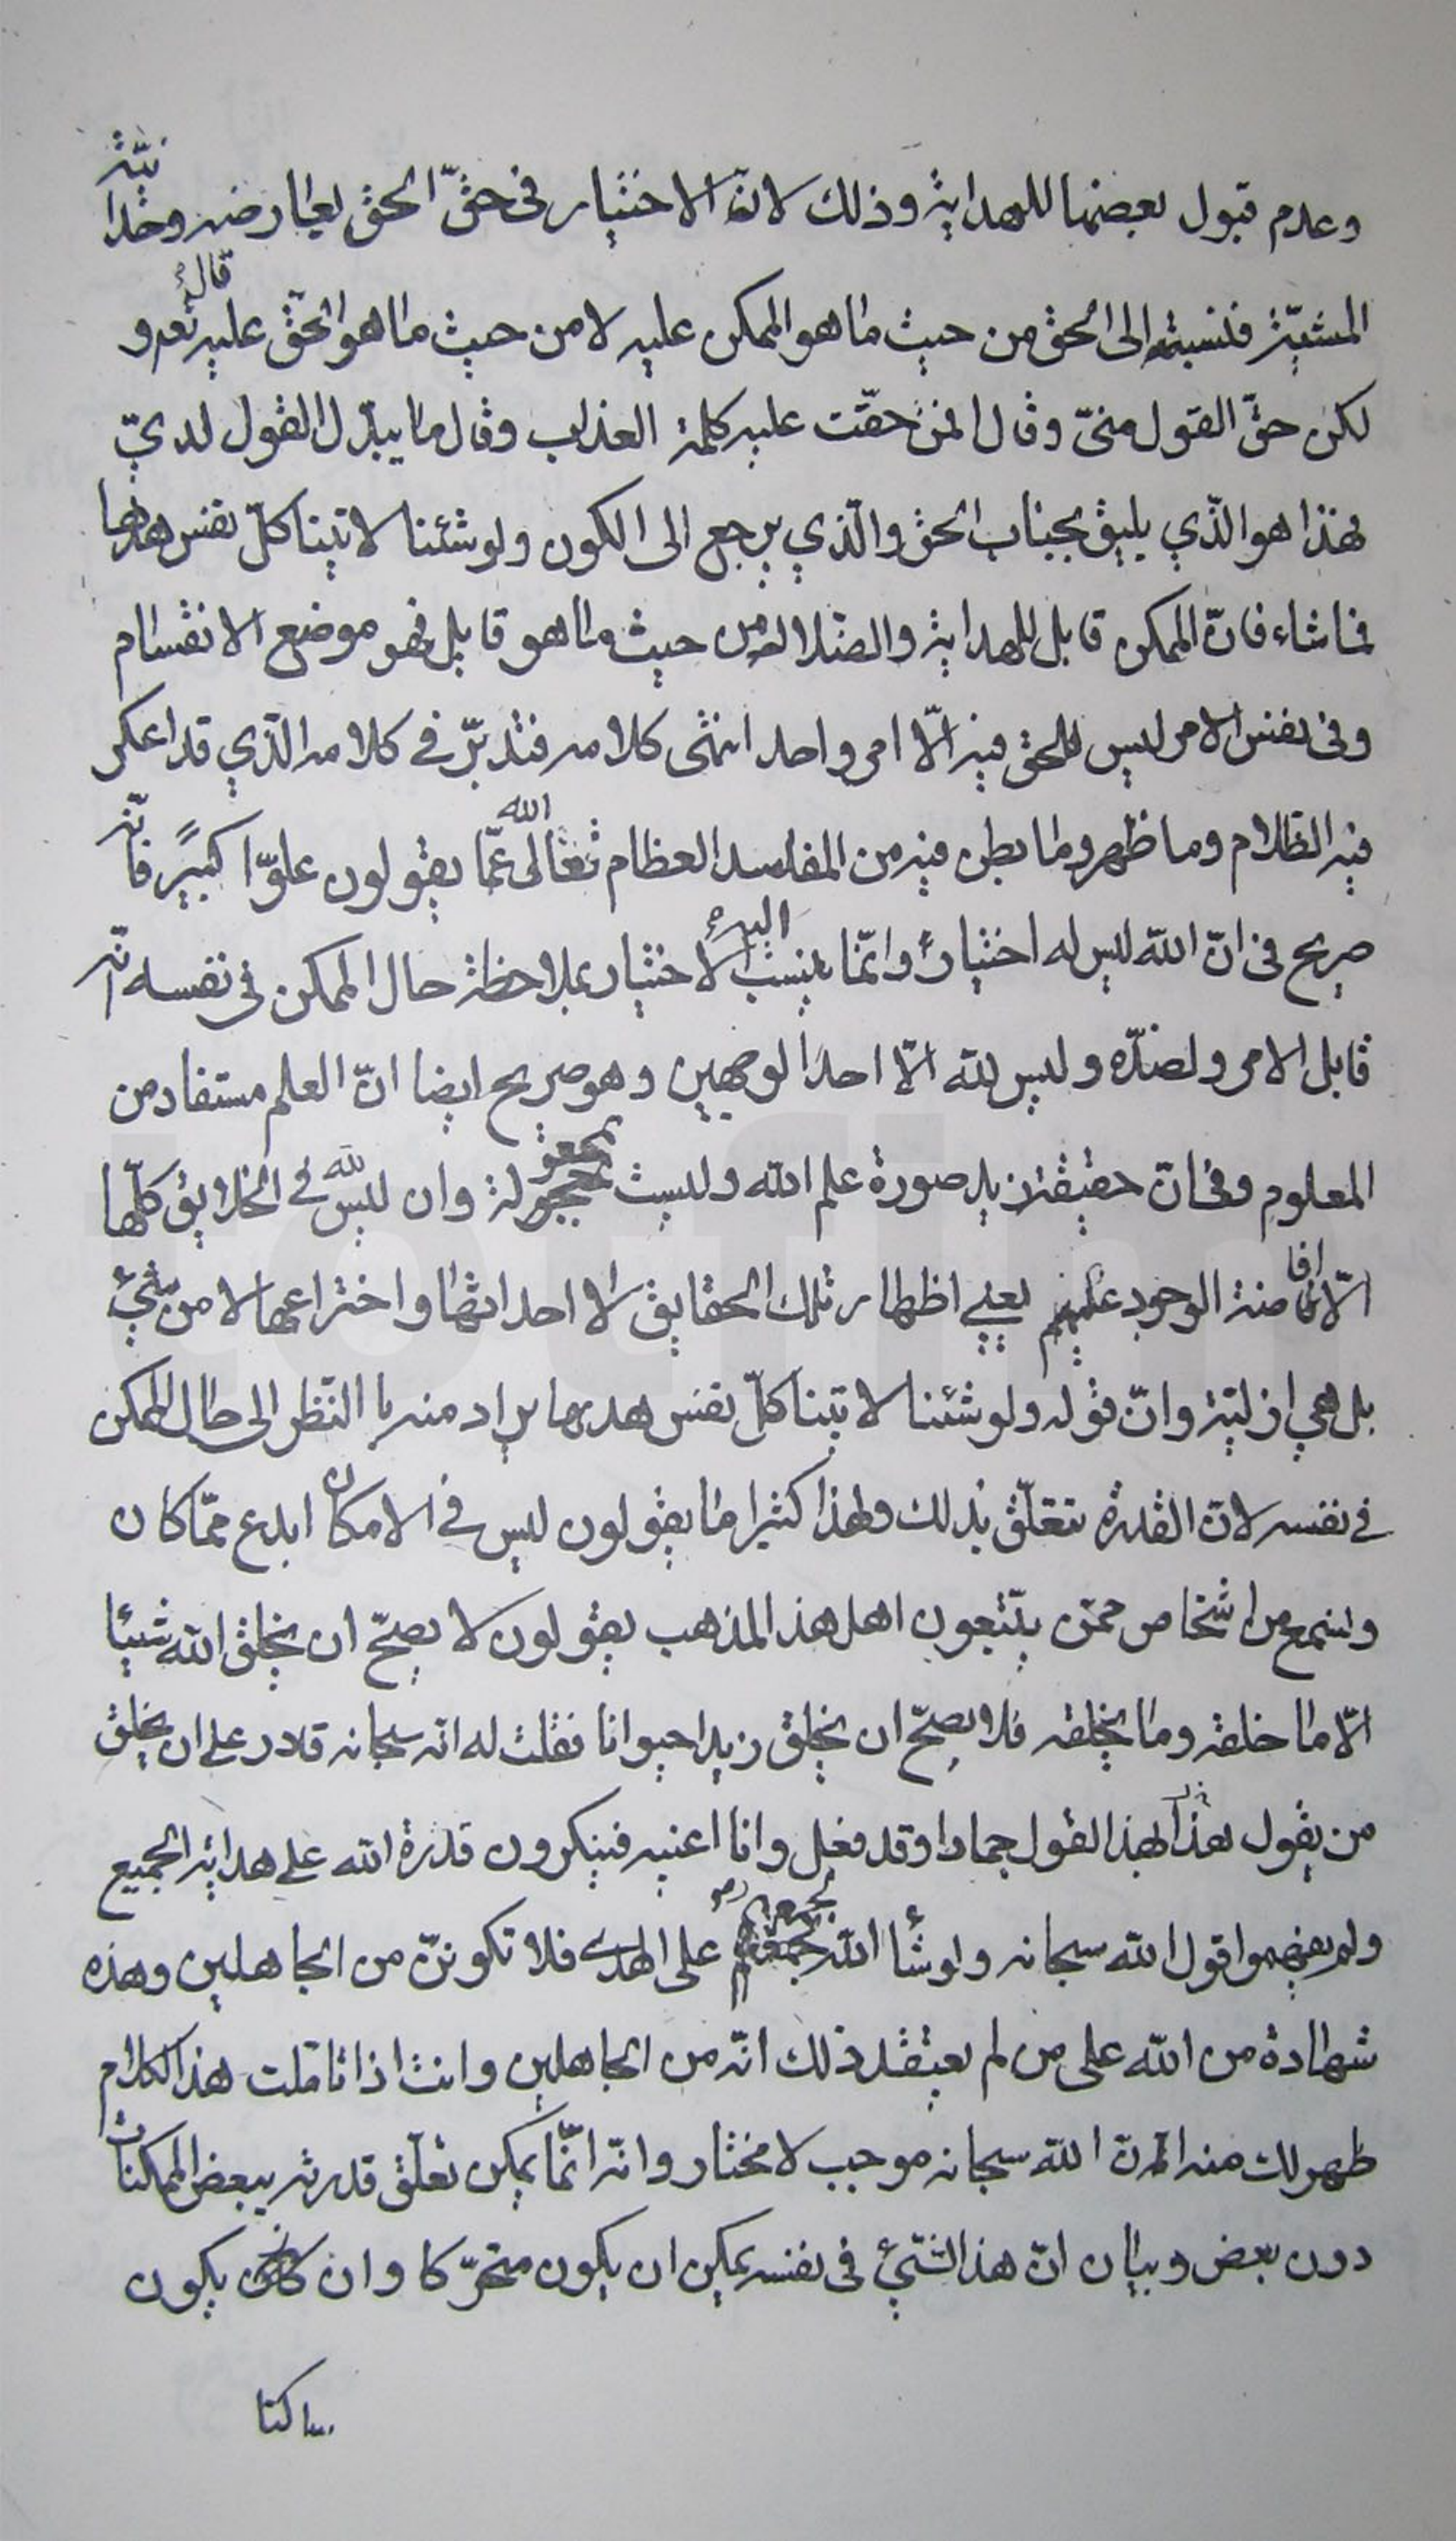 وعدم قبول بعضها للهداية وذلك لانّ الاختيار في حقّ الحق يعارضه وحدانيّة
المشيّة فنسبته الى الحق من حيث ما هو الممكن عليه لا من حيث ما هو الحقّ عليه قال تعه و
لكن حقّ القول منّي وقال افمن حقّت عليه كلمة العذاب وقال ما يبدّل القول لديّ
فهذا هو الّذي يليق بجناب الحق والّذي يرجع الى الكون ولو شئنا لاتينا كلّ نفس هداها
فما شاء فانّ الممكن قابل للهداية والضلالة من حيث ما هو قابل فهو موضع الانقسام
وفي نفس الامر ليس للحق فيه الّا امر واحد انتهى كلامه فتدبّر في كلامه الّذي قد اعكر
فيه الظلام وما ظهر وما بطن فيه من المفاسد العظام تعالى الله عمّا يقولون علوّا كبيرًا فانّه
صريح في انّ الله ليس له اختيار وانّما ينسب اليه الاختيار بملاحظة حال الممكن في نفسه انّه
قابل الامر ولضدّه وليس لله الّا احد الوجهين وهو صريح ايضا انّ العلم مستفاد من
المعلوم وفي انّ حقيقة زيد صورة علم الله وليست بمجعولة وان ليس لله في الخلايق كلّها
الّا افاضة الوجود عليهم يعني اظهار تلك الحقايق لا احداثها واختراعها لا من شيء
بل هي ازليّة وانّ قوله ولو شئنا لاتينا كلّ نفس هديها يراد منه بالنّظر الى حال الممكن
في نفسه لانّ القدرة تتعلّق بذلك ولهذا كثيرا ما يقولون ليس في الامكان ابدع ممّا كان
ونسمع من اشخاص ممّن يتّبعون اهل هذا المذهب يقولون لا يصحّ ان يخلق الله شيئا
الّا ما خلقه وما يخلقه فلا يصحّ ان يخلق زيدا حيوانا فقلت له انّه سبحانه قادر على ان يخلق
من يقول بهذا القول جمادا وقد فعل وانا اعنيه فينكرون قدرة الله على هداية الجميع
ولم يفهموا قول الله سبحانه ولو شأ الله لجمعهم على الهدى فلا تكوننّ من الجاهلين وهذه
شهادة من الله على من لم يعتقد ذلك انّه من الجاهلين وانت اذا تأملت هذا الكلام
ظهر لك منه انّ الله سبحانه موجب لا مختار وانّه انّما يمكن تعلّق قدرته ببعض الممكنات
دون بعض وبيان انّ هذا الشّيء في نفسه يمكن ان يكون متحرّكا وان يكون
ساكنا